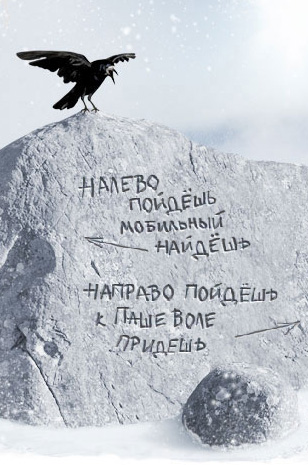 НАЛЕВО
ПОЙДЁШЬ
МОБИЛЬНЫЙ
НАЙДЁШЬ
НАПРАВО ПОЙДЁШЬ
К ПАШЕ ВОЛЕ
ПРИДЕШЬ